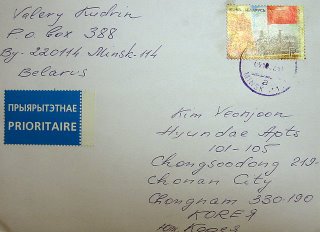 Valery Kudrin
P.O. box 388
By-220114 Minsk-114
Belarus
ПРЫЯРЫТЭТНАЕ
PRIORITAIRE
Kim Yeonjoon
Hyundae Apts
101-105
Chongsoodong 219-
Chonan City
Chongnam 330-190
KOREA
Юж. Корея